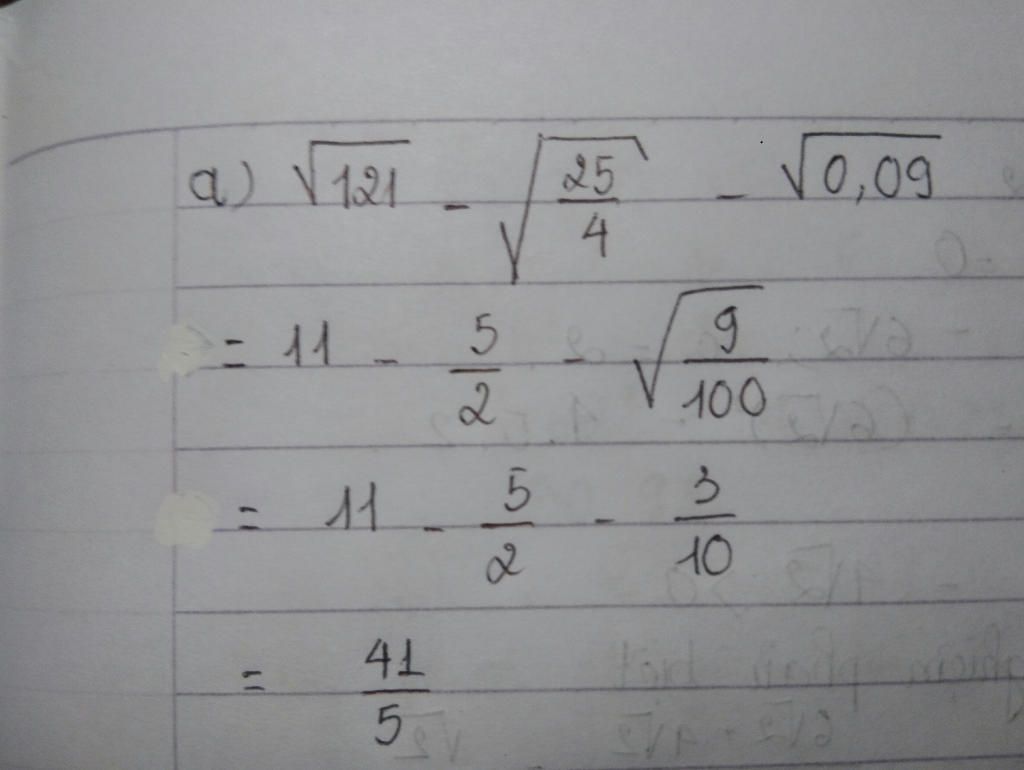 a) √121 - √(25/4) - √0,09
= 11 - 5/2 - √(9/100)
= 11 - 5/2 - 3/10
= 41/5